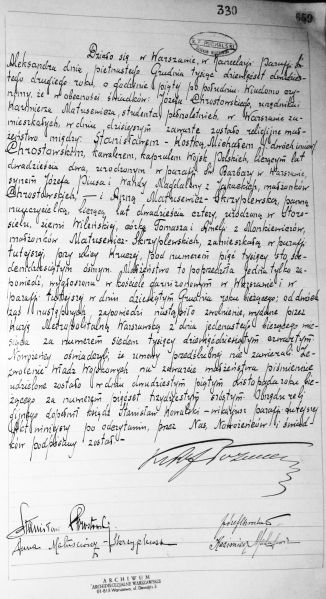 330
659
Działo się w Warszawie, w kancelarji Parafji Św.
Aleksandra dnia piętnastego Grudnia tysiąc dziewięćset dwudzies-
tego drugiego roku, o godzinie piątej po południu. Wiadomo czy-
nimy, że w obecności świadków: Józefa Chrostowskiego, urzędnika i
Kazimierza Matusewicza, studenta, pełnoletnich, w Warszawie za-
mieszkałych, w dniu dzisiejszym zawarte zostało religijne mał-
żeństwo między: Stanisławem-Kostką Michałem dwóch imion
Chrostowskim, kawalerem, kapralem Wojsk Polskich, liczącym lat
dwadzieścia dwa, urodzonym w parafji Św. Barbary w Warszawie,
synem Józefa Piusa i Wandy Magdaleny z małżonków
Chrostowskich, – i Anną Matusewicz-Skrzyplewską, panną,
nauczycielką, liczącą lat dwadzieścia cztery, urodzoną w
ziemi Wileńskiej, córką Tomasza i Anieli z Monkiewiczów,
małżonków Matusewicz-Skrzyplewskich, zamieszkałą w parafji
tutejszej, przy ulicy Kruczej, pod numerem pięć tysięcy sto sie-
demdziesiątym ósmym. Małżeństwo to poprzedziła jedna tylko za-
powiedź, wygłoszona w kościele garnizonowym w Warszawie i w
parafji tutejszej w dniu dziesiątym Grudnia roku bieżącego; od dwóch
zaś następnych zapowiedzi nastąpiło zwolnienie, wydane przez
Kurję Metropolitalną Warszawską z dnia jedenastego bieżącego mie-
siąca za numerem siedem tysięcy dziewięćdziesiątym czwartym
Nowożeńcy oświadczyli, że umowy przedślubnej nie zawierali. Ze-
zwolenie Władz Wojskowych na zawarcie małżeństwa piśmiennie
udzielone zostało w dniu dwudziestym piątym listopada roku bie-
żącego za numerem pięćset trzydziestym szóstym. Obrzędu reli-
gijnego dopełnił ksiądz Stanisław Kowalski – wikarjusz parafji tutejszej
Akt niniejszy po odczytaniu, przez Nas, Nowożeńców i świad-
ków podpisany został –
Stanisław Chrostowski
Anna Matusewicz-Skrzyplewska
Józef Chrostowski
Kazimierz Matusewicz
ARCHIWUM
ARCHIDIECEZJALNE WARSZAWSKIE